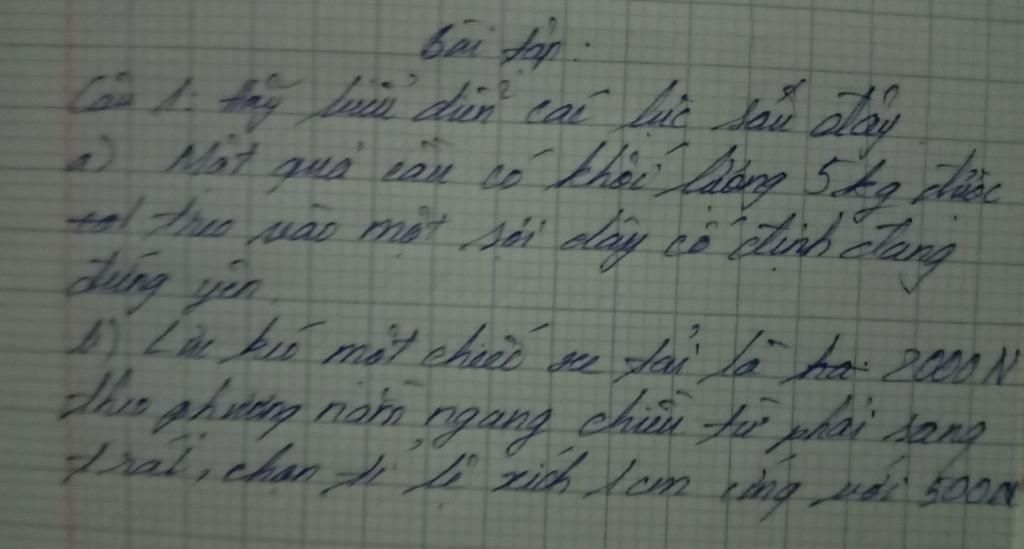 Bài tập:
Câu 1: Hãy biểu diễn các lực sau đây
a) Một quả cầu có khối lượng 5kg được
treo vào một sợi dây cố định đang
đứng yên
b) Lực kéo một chiếc xe tải là 2000N
theo phương nằm ngang chiều từ phải sang
trái, chọn tỉ lệ xích 1cm ứng với 500N